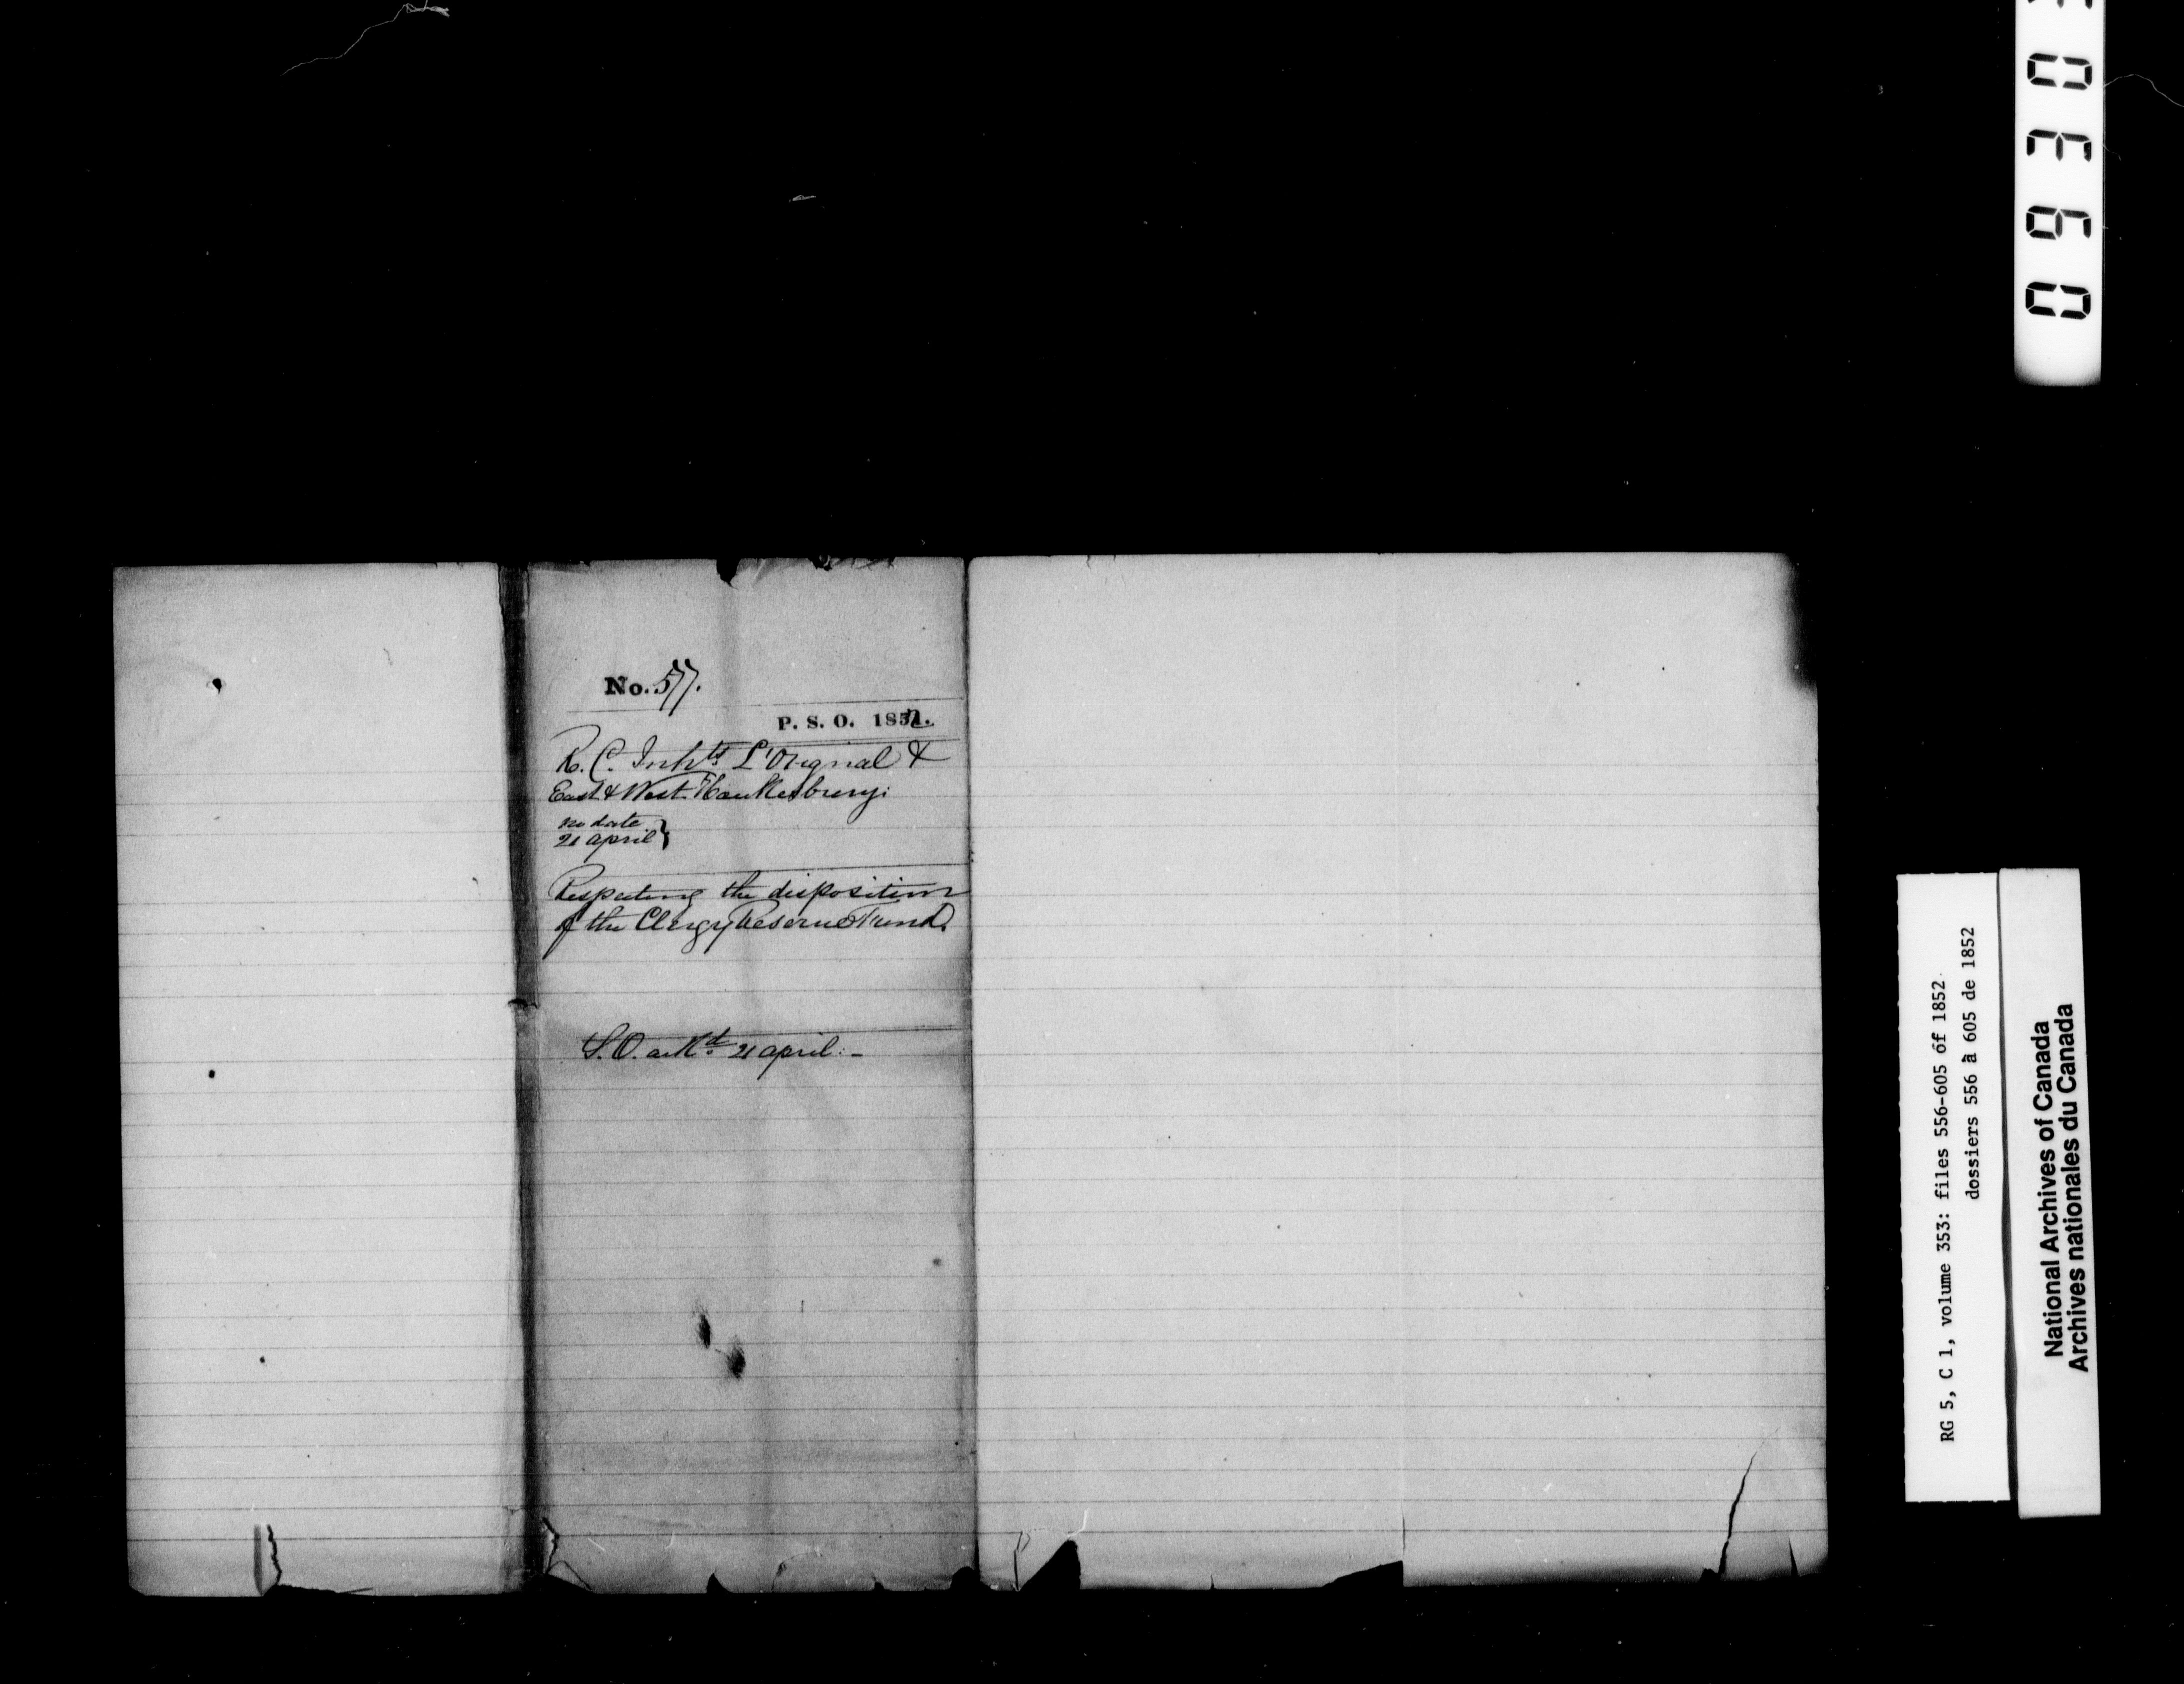 No. 577.
P. S. O. 1852.
R. C. Inhts L'Orignal &
East & West Hawkesbury:
no date
21 april }
Respecting the disposition
of the Clergy Reserve Fund.
S.O. ackd 21 april: -
RG 5, C 1, volume 353: files 556-605 of 1852
dossiers 556 à 605 de 1852
National Archives of Canada
Archives nationales du Canada
0930